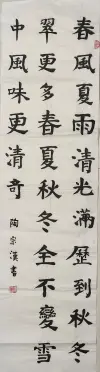 春風夏雨清光滿歷到秋冬
翠更多春夏秋冬全不變雪
中風味更清奇
陶宗漢書